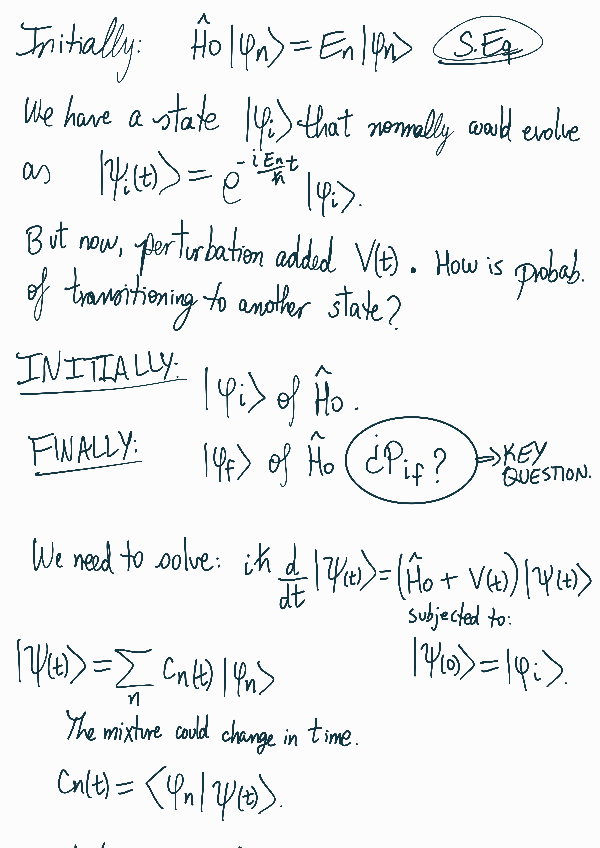 Initially: Ĥo|φn⟩ = En|φn⟩ S.Eq
We have a state |φi⟩ that normally would evolve
as |Ψi(t)⟩ = e^(-iEnt/ħ) |φi⟩.
But now, perturbation added V(t). How is probab.
of transitioning to another state?
INITIALLY: |φi⟩ of Ĥo.
FINALLY: |φf⟩ of Ĥo ¿Pif? ⇒ KEY
QUESTION.
We need to solve: iħ d/dt |Ψ(t)⟩ = (Ĥo + V(t))|Ψ(t)⟩
subjected to:
|Ψ(t)⟩ = ∑n Cn(t)|φn⟩ |Ψ(0)⟩ = |φi⟩.
The mixture could change in time.
Cn(t) = ⟨φn|Ψ(t)⟩.